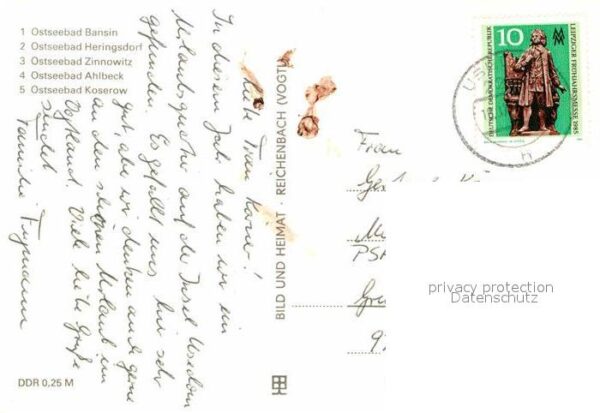 1 Ostseebad Bansin
2 Ostseebad Heringsdorf
3 Ostseebad Zinnowitz
4 Ostseebad Ahlbeck
5 Ostseebad Koserow
Liebe Frau
In diesem Jahr haben wir ein
Urlaubsquartier auf der Insel Usedom
gefunden. Es gefällt uns hier sehr
gut, aber wir denken auch gerne
an den schönen Urlaub im
Vogtland. Viele liebe Grüße
sendet
Familie
DDR 0,25 M
BILD UND HEIMAT · REICHENBACH (VOGTL)
10
DEUTSCHE DEMOKRATISCHE REPUBLIK
LEIPZIGER FRÜHJAHRSMESSE 1985
Frau
PSF
privacy protection
Datenschutz